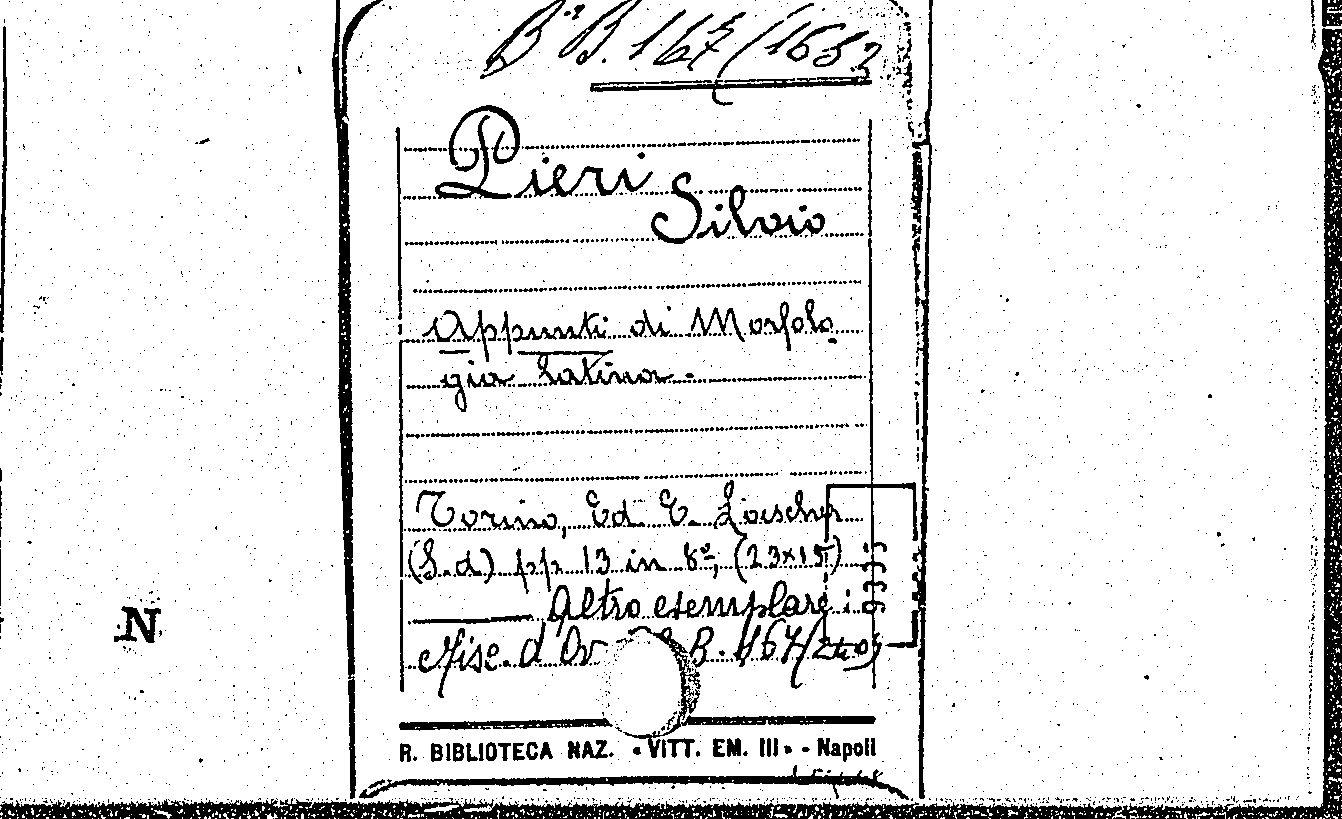 B.B. 167/(1652
Pieri
Silvio
Appunti di Morfolo
gia latina.
Torino, Ed. E. Loescher
(S.d) pp 13 in 8º, (23x15)
Altro esemplare:
Misc. d'Ov B. 167/
N
R. BIBLIOTECA NAZ. «VITT. EM. III» - Napoli